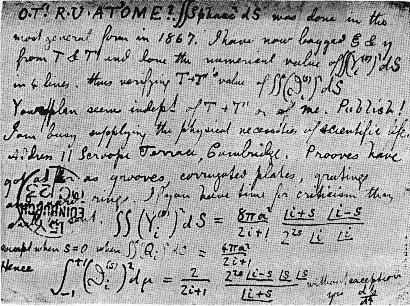 O. T'. R. U. AT 'OME? ∬ Spharc² dS was done in the
most general form in 1867. I have now bagged ξ & η
from T & T' and done the numerical value of ∬(Y_i^(s))² dS
in 4 lines. thus verifying T + T''s value of ∬(ϑ_i^(s))² dS
Your plan seems indept. of T + T' or of me. Publish!
I am busy supplying the physical necessities of scientific life
address 11 Scroope Terrace, Cambridge. Prooves have
got as grooves, corrugated plates, grating
rings. If you have time for criticism then
∬ (Y_i^(s))² dS = 8πa²/(2i+1) |i+s |i−s / 2^(2s) |i |i
except when s=0 when ∬(Q_i)² dS = 4πa²/(2i+1)
Hence ∫_(−1)^(+1) (ϑ_i^(s))² dμ = 2/(2i+1) 2^(2s) |i−s |s |s / |i+s without exception
EDINBURGH